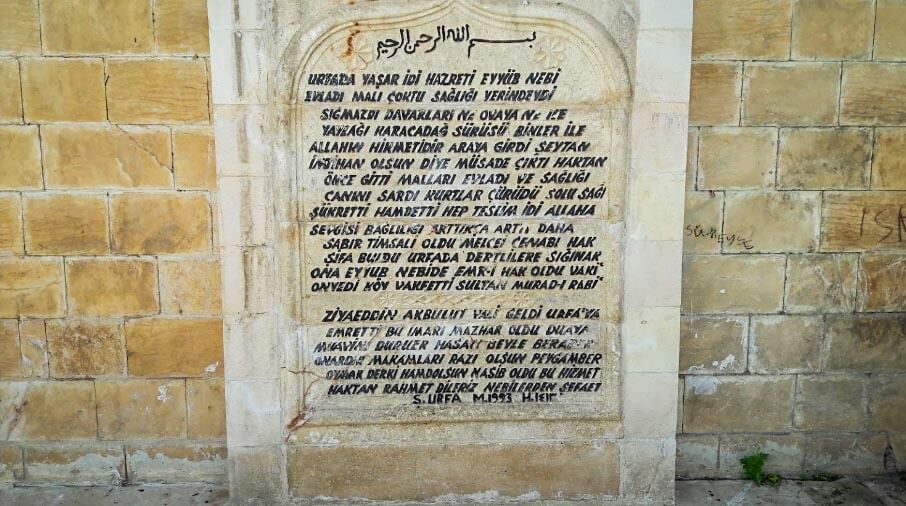 بسم الله الرحمن الرحيم
URFADA YAŞAR İDİ HAZRETİ EYYÜB NEBİ
EVLADI MALI ÇOKTU SAĞLIĞI YERİNDEYDİ
SIĞMAZDI DAVARLARI NE OVAYA NE İLE
YAYLAĞI KARACADAĞ SÜRÜSÜ BİNLER İLE
ALLAHIN HİKMETİDİR ARAYA GİRDİ ŞEYTAN
İMTİHAN OLSUN DİYE MÜSADE ÇIKTI HAKTAN
ÖNCE GİTTİ MALLARI EVLADI VE SAĞLIĞI
CANINI SARDI KURTLAR ÇÜRÜDÜ SOLU SAĞI
ŞÜKRETTİ HAMDETTİ HEP TESLİM İDİ ALLAHA
SEVGİSİ BAĞLILIĞI ARTTIKÇA ARTTI DAHA
SABIR TİMSALİ OLDU MELCEİ CENABI HAK
ŞİFA BULDU URFADA DERTLİLERE SIĞINAK
ONA EYYUB NEBİDE EMR-İ HAK OLDU VAKİ
ONYEDİ KÖY VAKFETTİ SULTAN MURAD-I RABİ
ZİYAEDDİN AKBULUT VALİ GELDİ URFA'YA
EMRETTİ BU İMARI MAZHAR OLDU DUAYA
MUAVİNİ HASAN BEYLE BERABER
ONARDI MAKAMLARI RAZI OLSUN PEYGAMBER
OYMAK DERKİ HAMDOLSUN NASİB OLDU BU HİZMET
HAKTAN RAHMET DİLERİZ NEBİLERDEN ŞEFAET
Ş. URFA M.1993 H.١٤١٣
SÜMEYYE